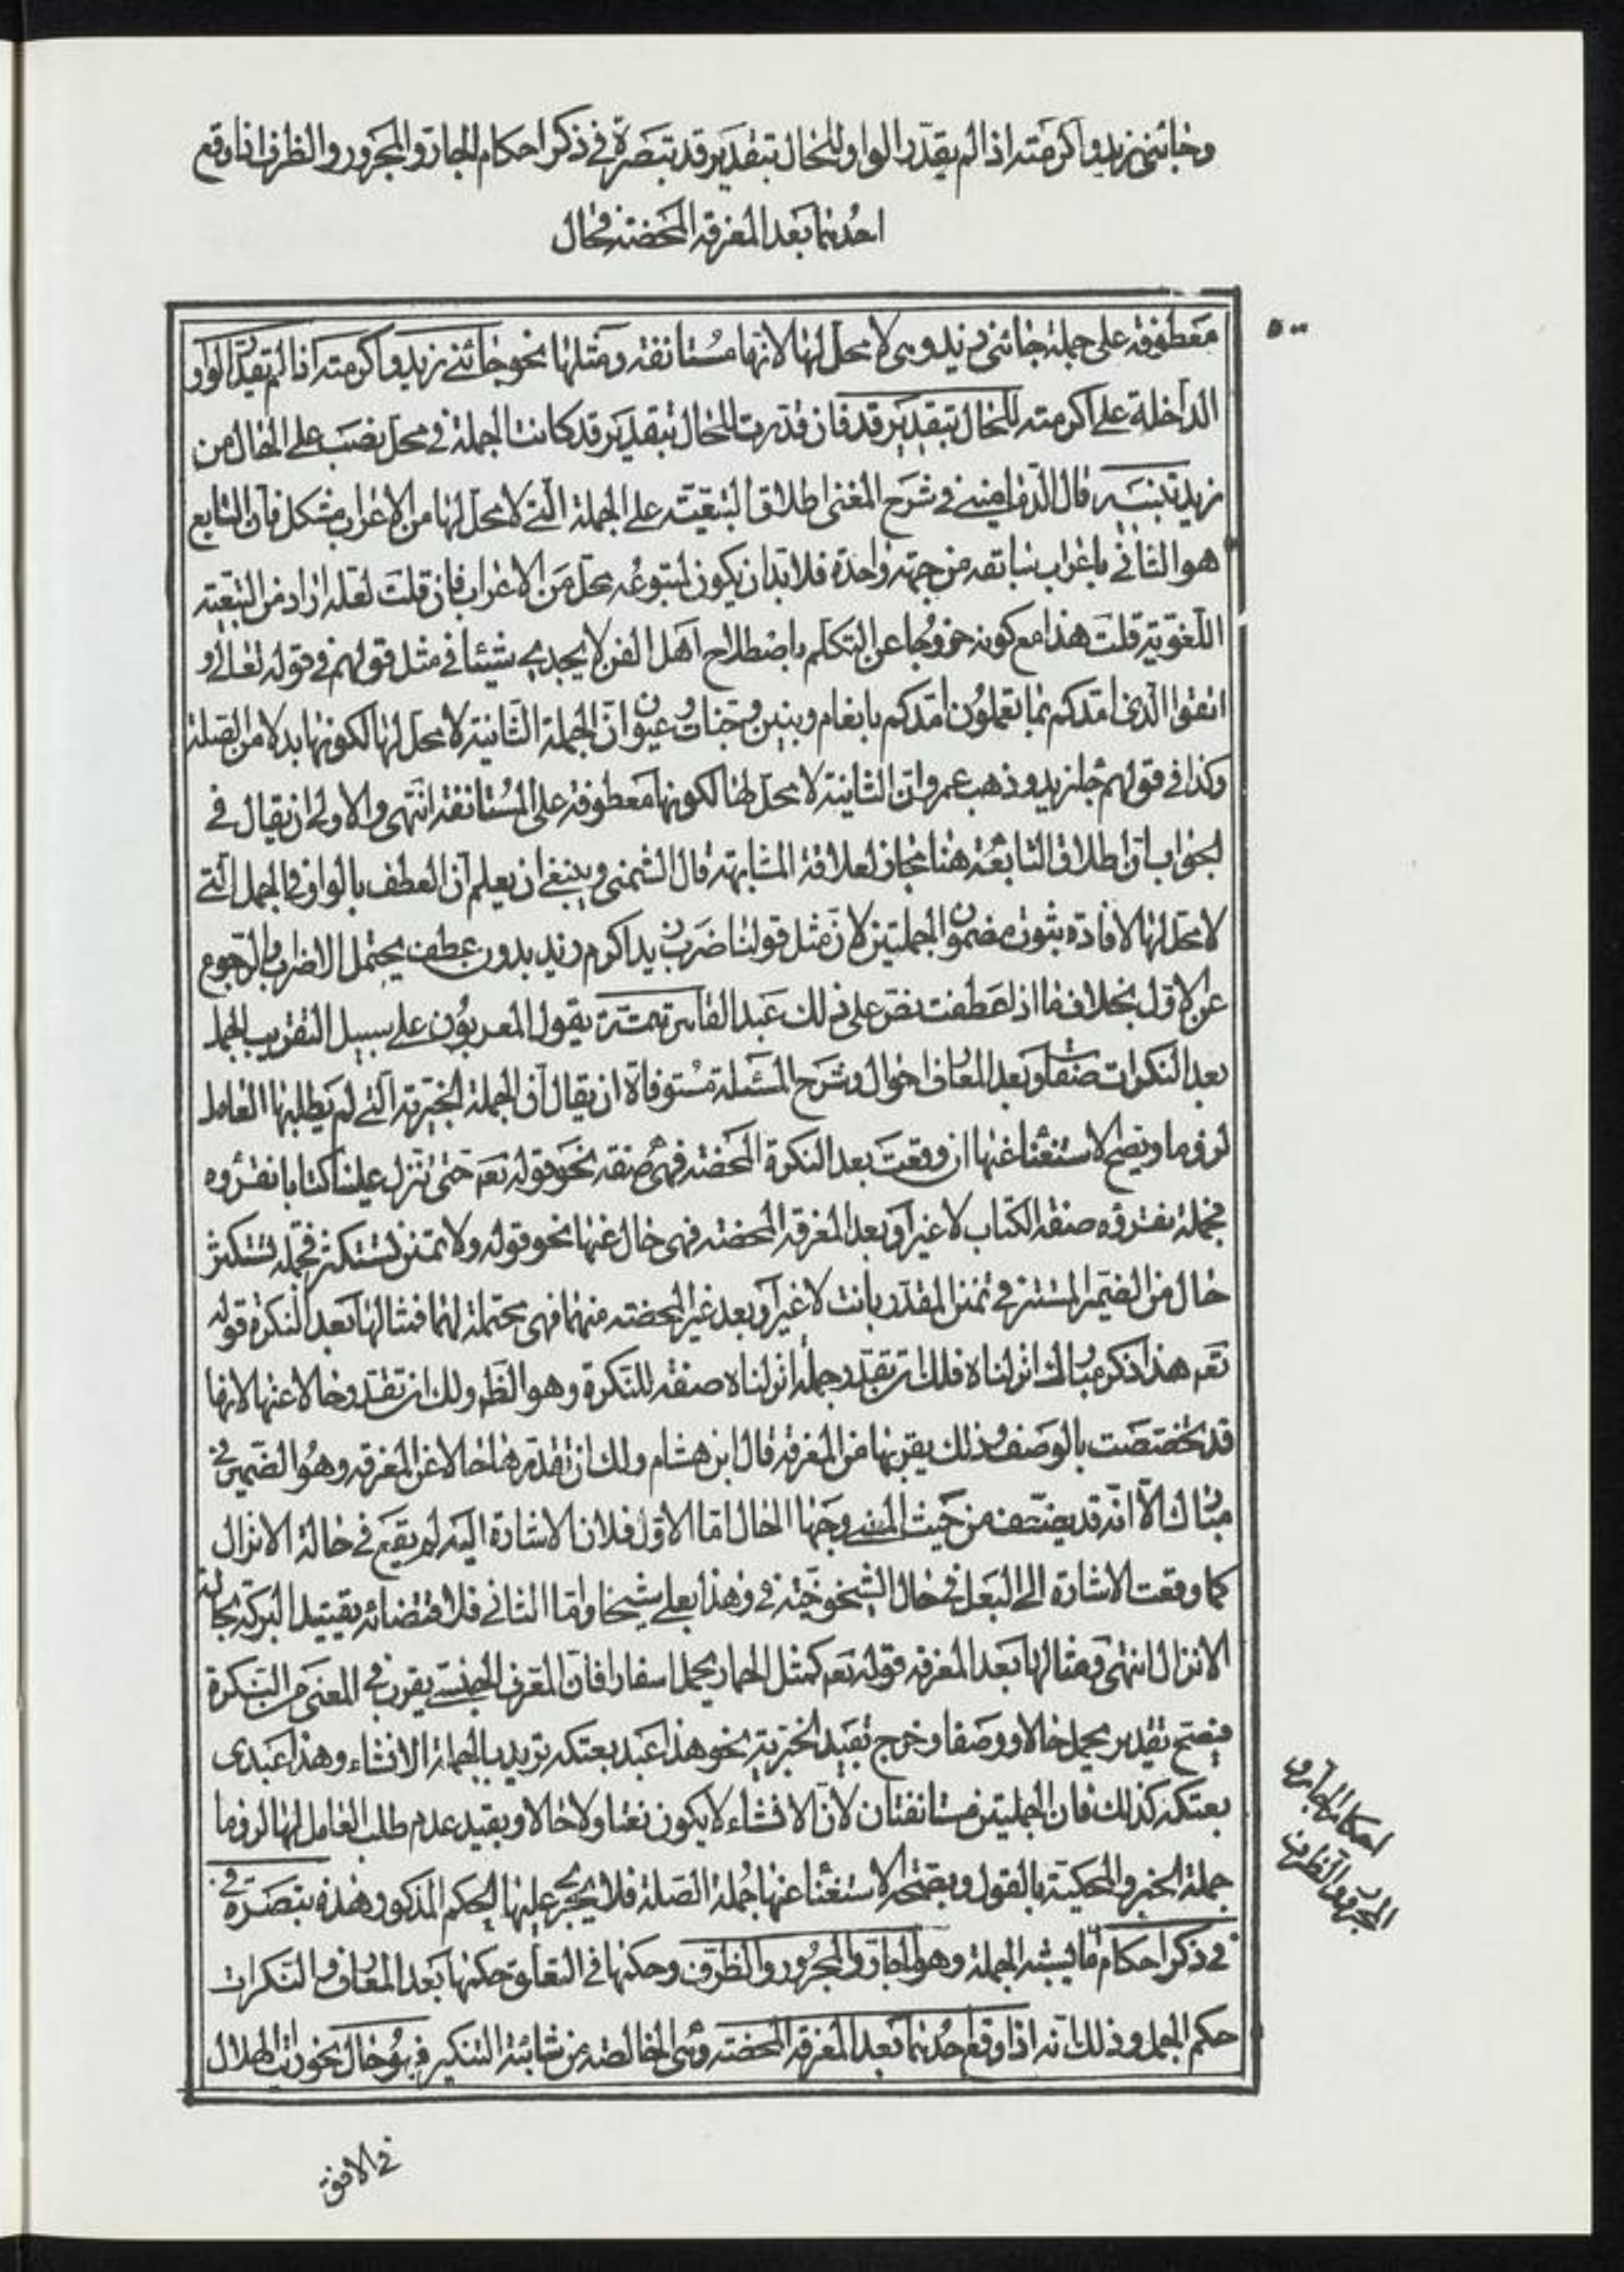 وجائنی زید واکرمته اذا لم یقدّر الواو للحال بتقدیر قد تبصرة فی ذکر احکام الجار والمجرور والظرف اذا وقع
احدهما بعد المعرفة المحضة فحال
معطوفة علی جملة جائنی زید وهی لا محل لها لانها مستانفة ومثلها نحو جائنی زید واکرمته اذا لم یقدّر الواو
الداخلة علی اکرمته للحال بتقدیر قد فان قدرت للحال بتقدیر قد کانت الجملة فی محل نصب علی الحال من
زید تنبیه قال الدمامینی فی شرح المغنی اطلاق التبعیة علی الجملة التی لا محل لها من الاعراب مشکل فان التابع
هو الثانی باعراب سابقه من جهة واحدة فلابد ان یکون لمتبوعه محل من الاعراب فان قلت لعله اراد من التبعیة
اللغویة قلت هذا مع کونه خروجا عن التکلم باصطلاح اهل الفن لا یجدی شیئا فی مثل قولهم فی قوله تعالی و
اتقوا الذی امدکم بما تعلمون امدکم بانعام وبنین وجنات وعیون ان الجملة الثانیة لا محل لها لکونها بدلا من الصلة
وکذا فی قولهم جاء زید وذهب عمرو ان الثانیة لا محل لها لکونها معطوفة علی المستانفة انتهی والاولی ان یقال فی
الجواب ان اطلاق التابعة هنا مجاز لعلاقة المشابهة قال الشمنی وینبغی ان یعلم ان العطف بالواو فی الجمل التی
لا محل لها لافادة ثبوت مضمون الجملتین لان مثل قولنا ضرب زید اکرم زید بدون عطف یحتمل الاضراب والرجوع
عن الاول بخلاف ما اذا عطفت نص علی ذلک عبد القاهر تتمة یقول المعربون علی سبیل التقریب الجمل
بعد النکرات صفات وبعد المعارف احوال وشرح المسئلة مستوفاة ان یقال ان الجملة الخبریة التی لم یطلبها العامل
لزوما ویصح الاستغناء عنها ان وقعت بعد النکرة المحضة فهی صفة نحو قوله تعم حتی تنزل علینا کتابا نقرؤه
فجملة نقرؤه صفة لکتاب لا غیر او بعد المعرفة المحضة فهی حال عنها نحو قوله ولا تمنن تستکثر فجملة تستکثر
حال من الضمیر المستتر فی تمنن المقدّر بانت لا غیر او بعد غیر المحضة منهما فهی محتملة لهما فمثالها بعد النکرة قوله
تعم هذا ذکر مبارک انزلناه فلک ان تقدّر جملة انزلناه صفة للنکرة وهو الظ ولک ان تقدّر حالا عنها لانها
قد تخصصت بالوصف وذلک یقربها من المعرفة قال ابن هشام ولک ان تقدّرها حالا عن المعرفة وهو الضمیر فی
مبارک الا انه قد یضعف من حیث المعنی وجها الحال اما الاول فلان الاشارة الیه لم یقع فی حالة الانزال
کما وقعت الاشارة الی البعل فی حال الشیخوخیة فی وهذا بعلی شیخا واما الثانی فلاقتضائه تقیید البرکة بحالة
الانزال انتهی ومثالها بعد المعرفة قوله تعم کمثل الحمار یحمل اسفارا فان المعرف الجنسی یقرب فی المعنی من النکرة
فیصح تقدیر یحمل حالا ووصفا وخرج بقید الخبریة نحو هذا عبد بعتکه ترید بالجملة الانشاء وهذا عبدی
بعتکه کذلک فان الجملتین مستانفتان لان الانشاء لا یکون نعتا ولا حالا وبقید عدم طلب العامل لها لزوما
جملة الخبر والمحکیة بالقول وبصحة الاستغناء عنها جملة الصلة فلا یجری علیها الحکم المذکور وهذه تبصرة فی
فی ذکر احکام ما یشبه الجملة وهو الجار والمجرور والظرف وحکمها فی التعلق حکمها بعد المعارف والنکرات
حکم الجمل وذلک انه اذا وقع احدهما بعد المعرفة المحضة وهی الخالصة من شائبة التنکیر فهو حال نحو رایت الهلال
احکام الجار و
المجرور والظرف
فی الافق